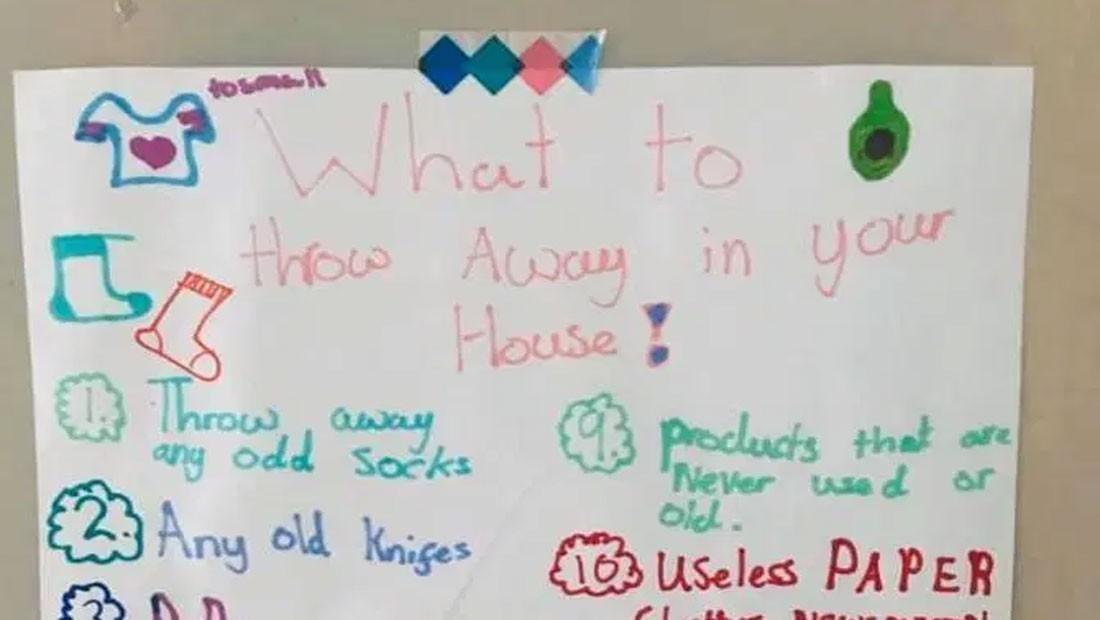 to small
What to
throw Away in your
House!
1. Throw away
any odd socks
2. Any old Knifes
3.
9. products that are
Never used or
old.
10 Useless PAPER